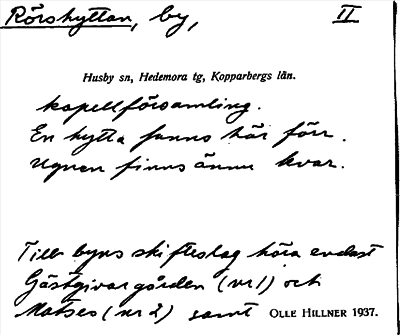 Rörshyttan, by, II
Husby sn, Hedemora tg, Kopparbergs län.
kapellförsamling.
En hytta fanns här förr.
Ugnen finns ännu kvar.
Till byns skifteslag höra endast
Gästgivargården (nr 1) och
Matses (nr 2) samt OLLE HILLNER 1937.